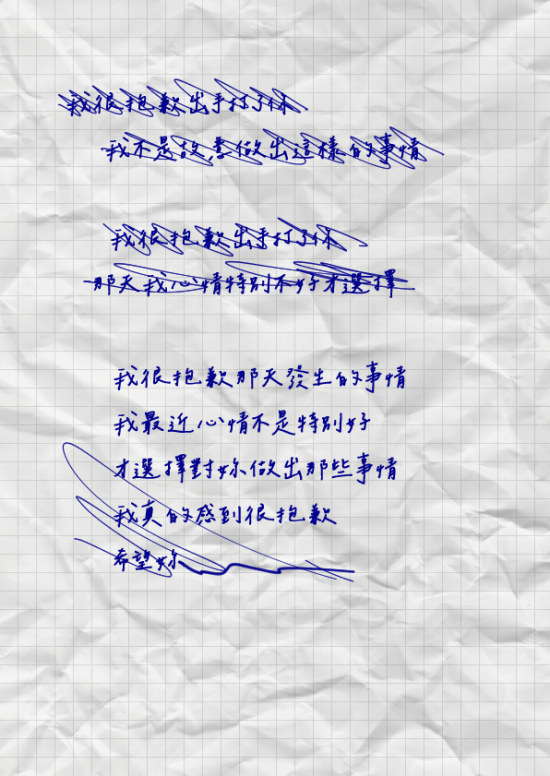 我很抱歉出手打了你
我不是故意做出這樣的事情
我很抱歉出手打了你
那天我心情特別不好才選擇
我很抱歉那天發生的事情
我最近心情不是特別好
才選擇對妳做出那些事情
我真的感到很抱歉
希望妳